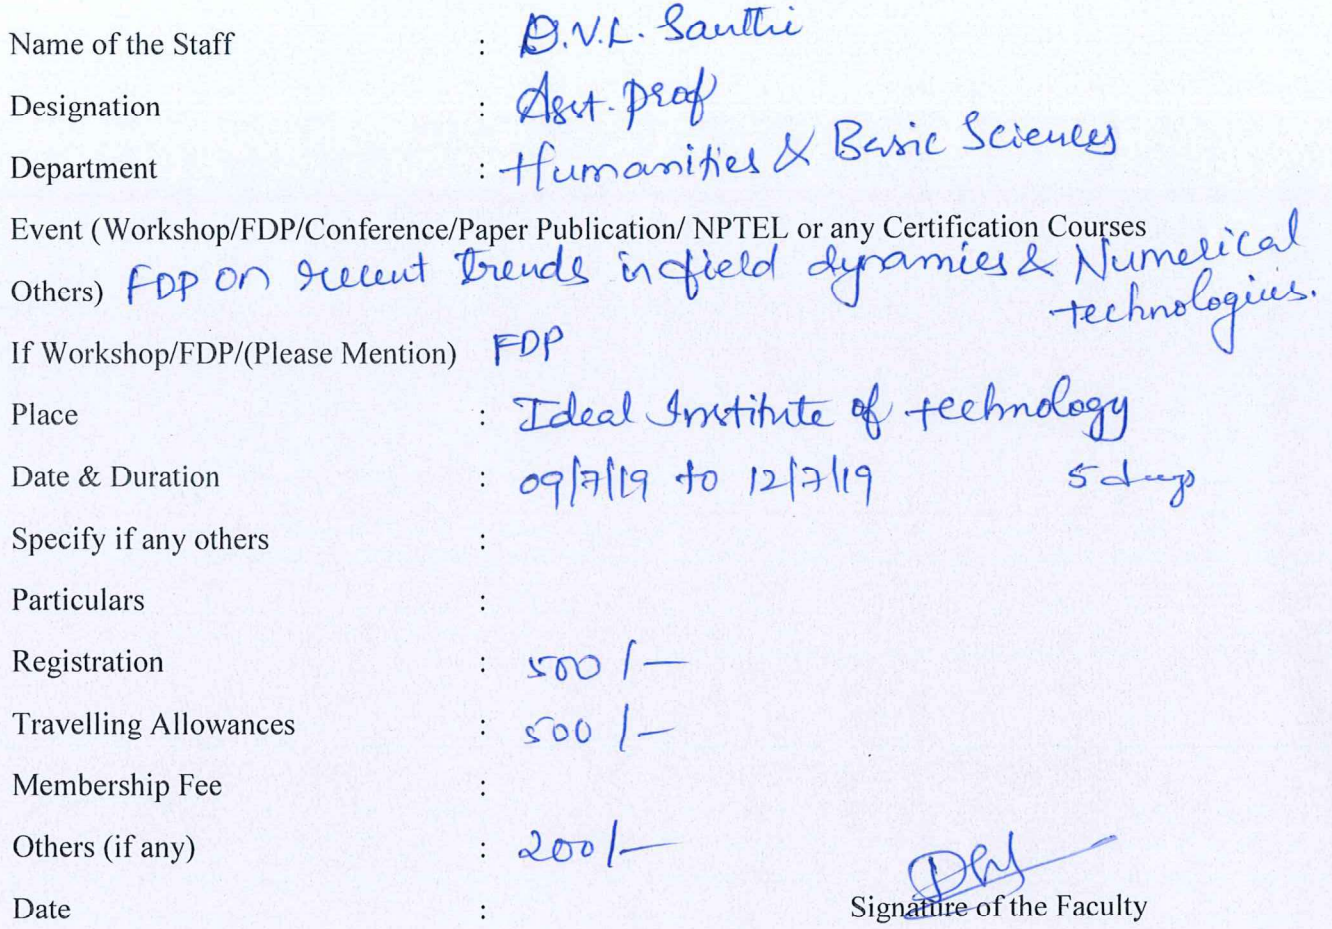 Name of the Staff : D.V.L. Santhi
Designation : Asst. prof
Department : Humanities & Basic Sciences
Event (Workshop/FDP/Conference/Paper Publication/ NPTEL or any Certification Courses
Others) FDP on recent trends in field dynamics & Numerical
technologies.
If Workshop/FDP/(Please Mention) FDP
Place : Ideal Institute of technology
Date & Duration : 09/7/19 to 12/7/19 5 days
Specify if any others :
Particulars :
Registration : 500/-
Travelling Allowances : 500/-
Membership Fee :
Others (if any) : 200/-
Date :
Signature of the Faculty